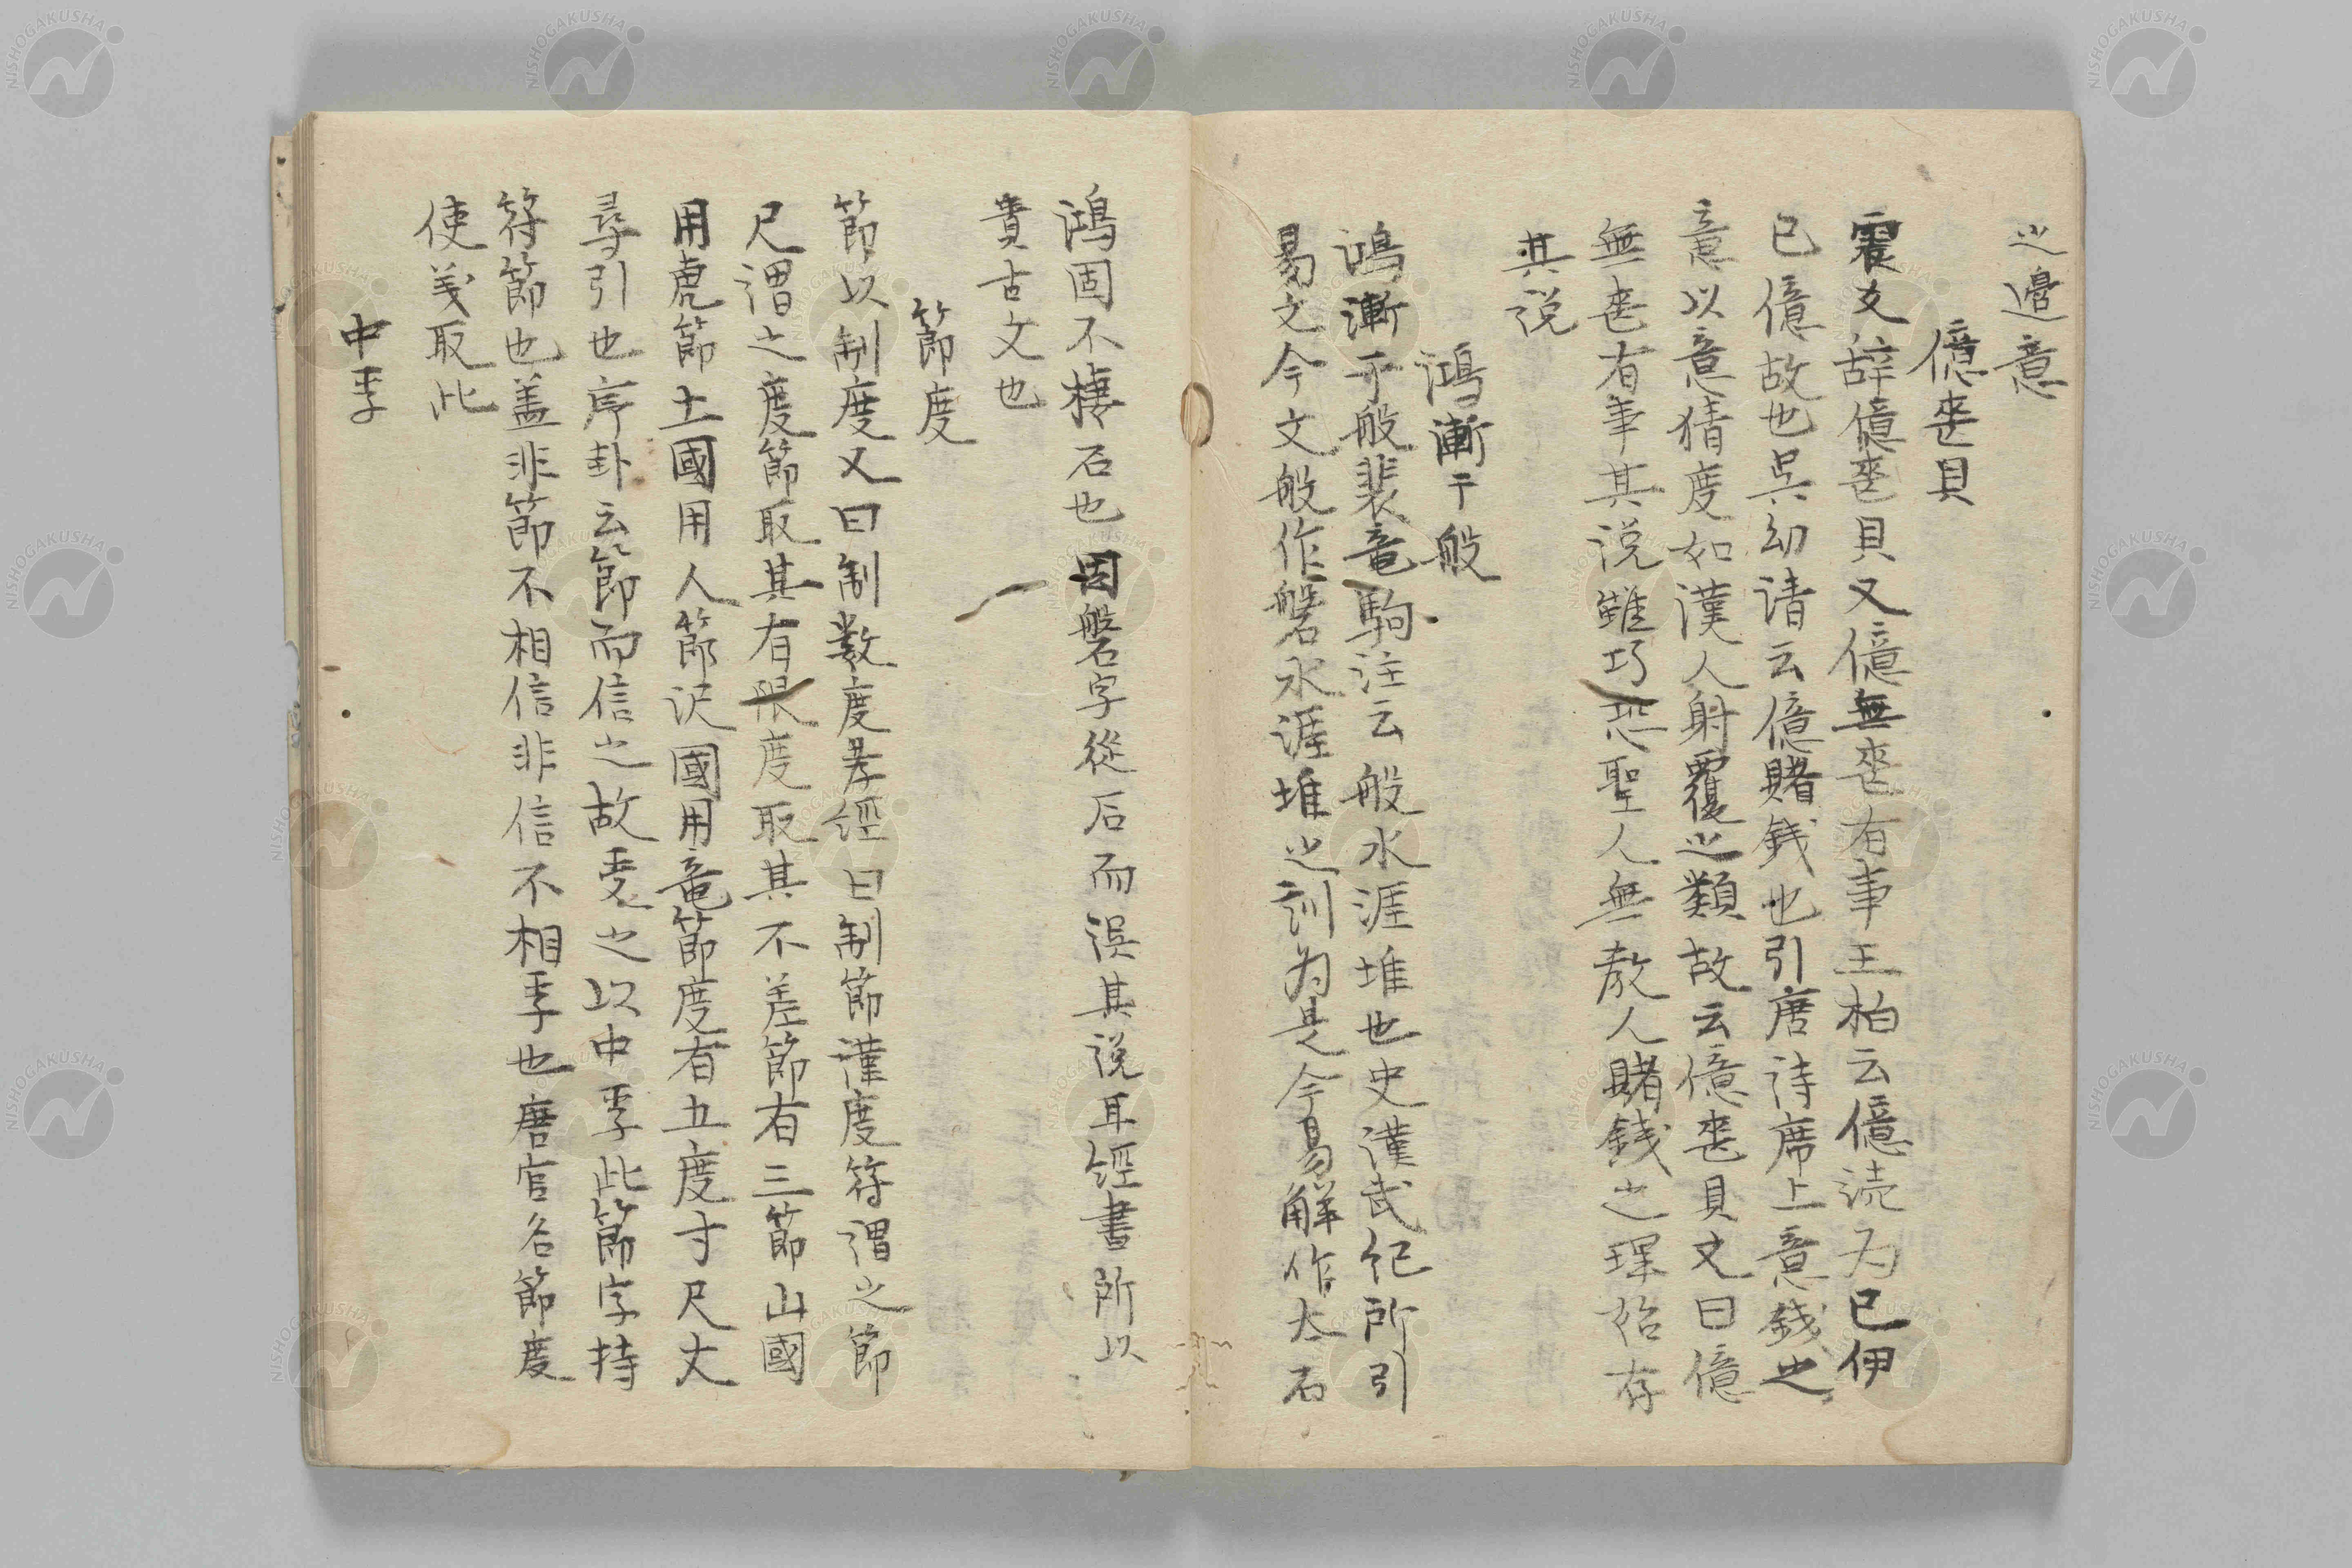 之邉意
億喪貝
震爻辞億喪貝又億無喪有事王柏云億読为已伊
已億故也吳幼请云億賭銭也引唐诗席上意銭之
意以意猜度如漢人射覆之類故云億喪貝文曰億
無喪有事其说雖巧恐聖人無教人賭銭之理姑存
其说
鴻漸于般
鴻漸于般裴竜駒注云般水涯堆也史漢武紀所引
易文今文般作磐水涯堆之訓为是今易解作大石
鴻固不棲石也因磐字從石而誤其说耳經書所以
貴古文也
節度
節以制度又曰制数度孝經曰制節謹度符謂之節
尺謂之度節取其有限度取其不差節有三節山國
用虎節土國用人節沢國用竜節度有五度寸尺丈
尋引也序卦云節而信之故受之以中孚此節字持
符節也盖非節不相信非信不相孚也唐官名節度
使義取此
中孚
NISHOGAKUSHA